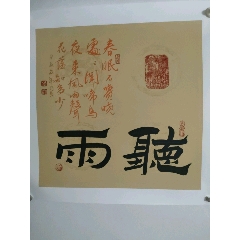 聽雨
春眠不覺曉
處〻聞啼鳥
夜來風雨聲
花落知多少